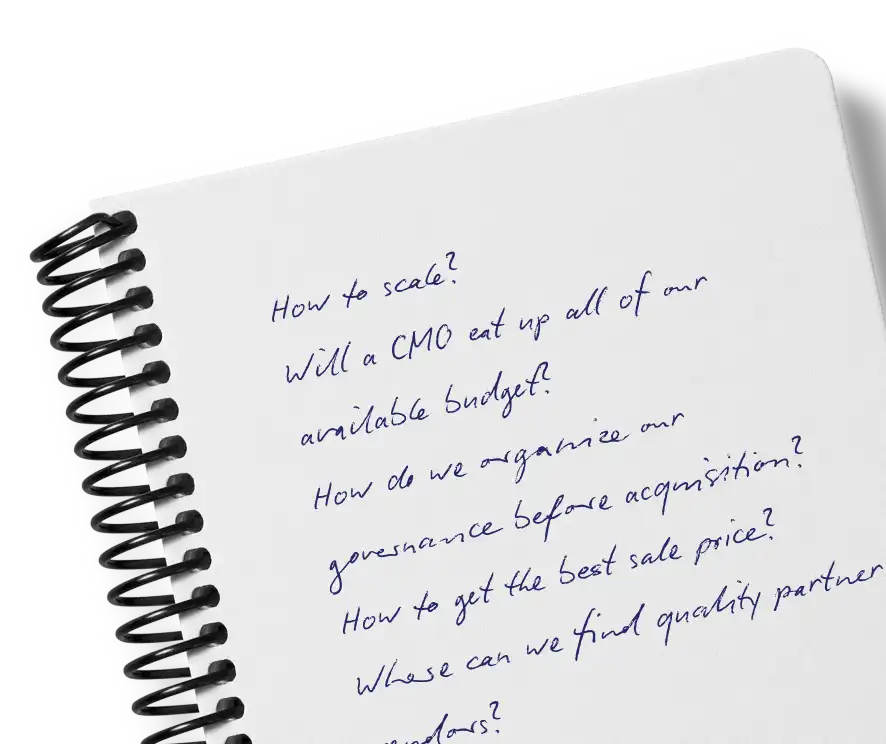 How to scale?
Will a CMO eat up all of our
available budget?
How do we organize our
governance before acquisition?
How to get the best sale price?
Where can we find quality partner